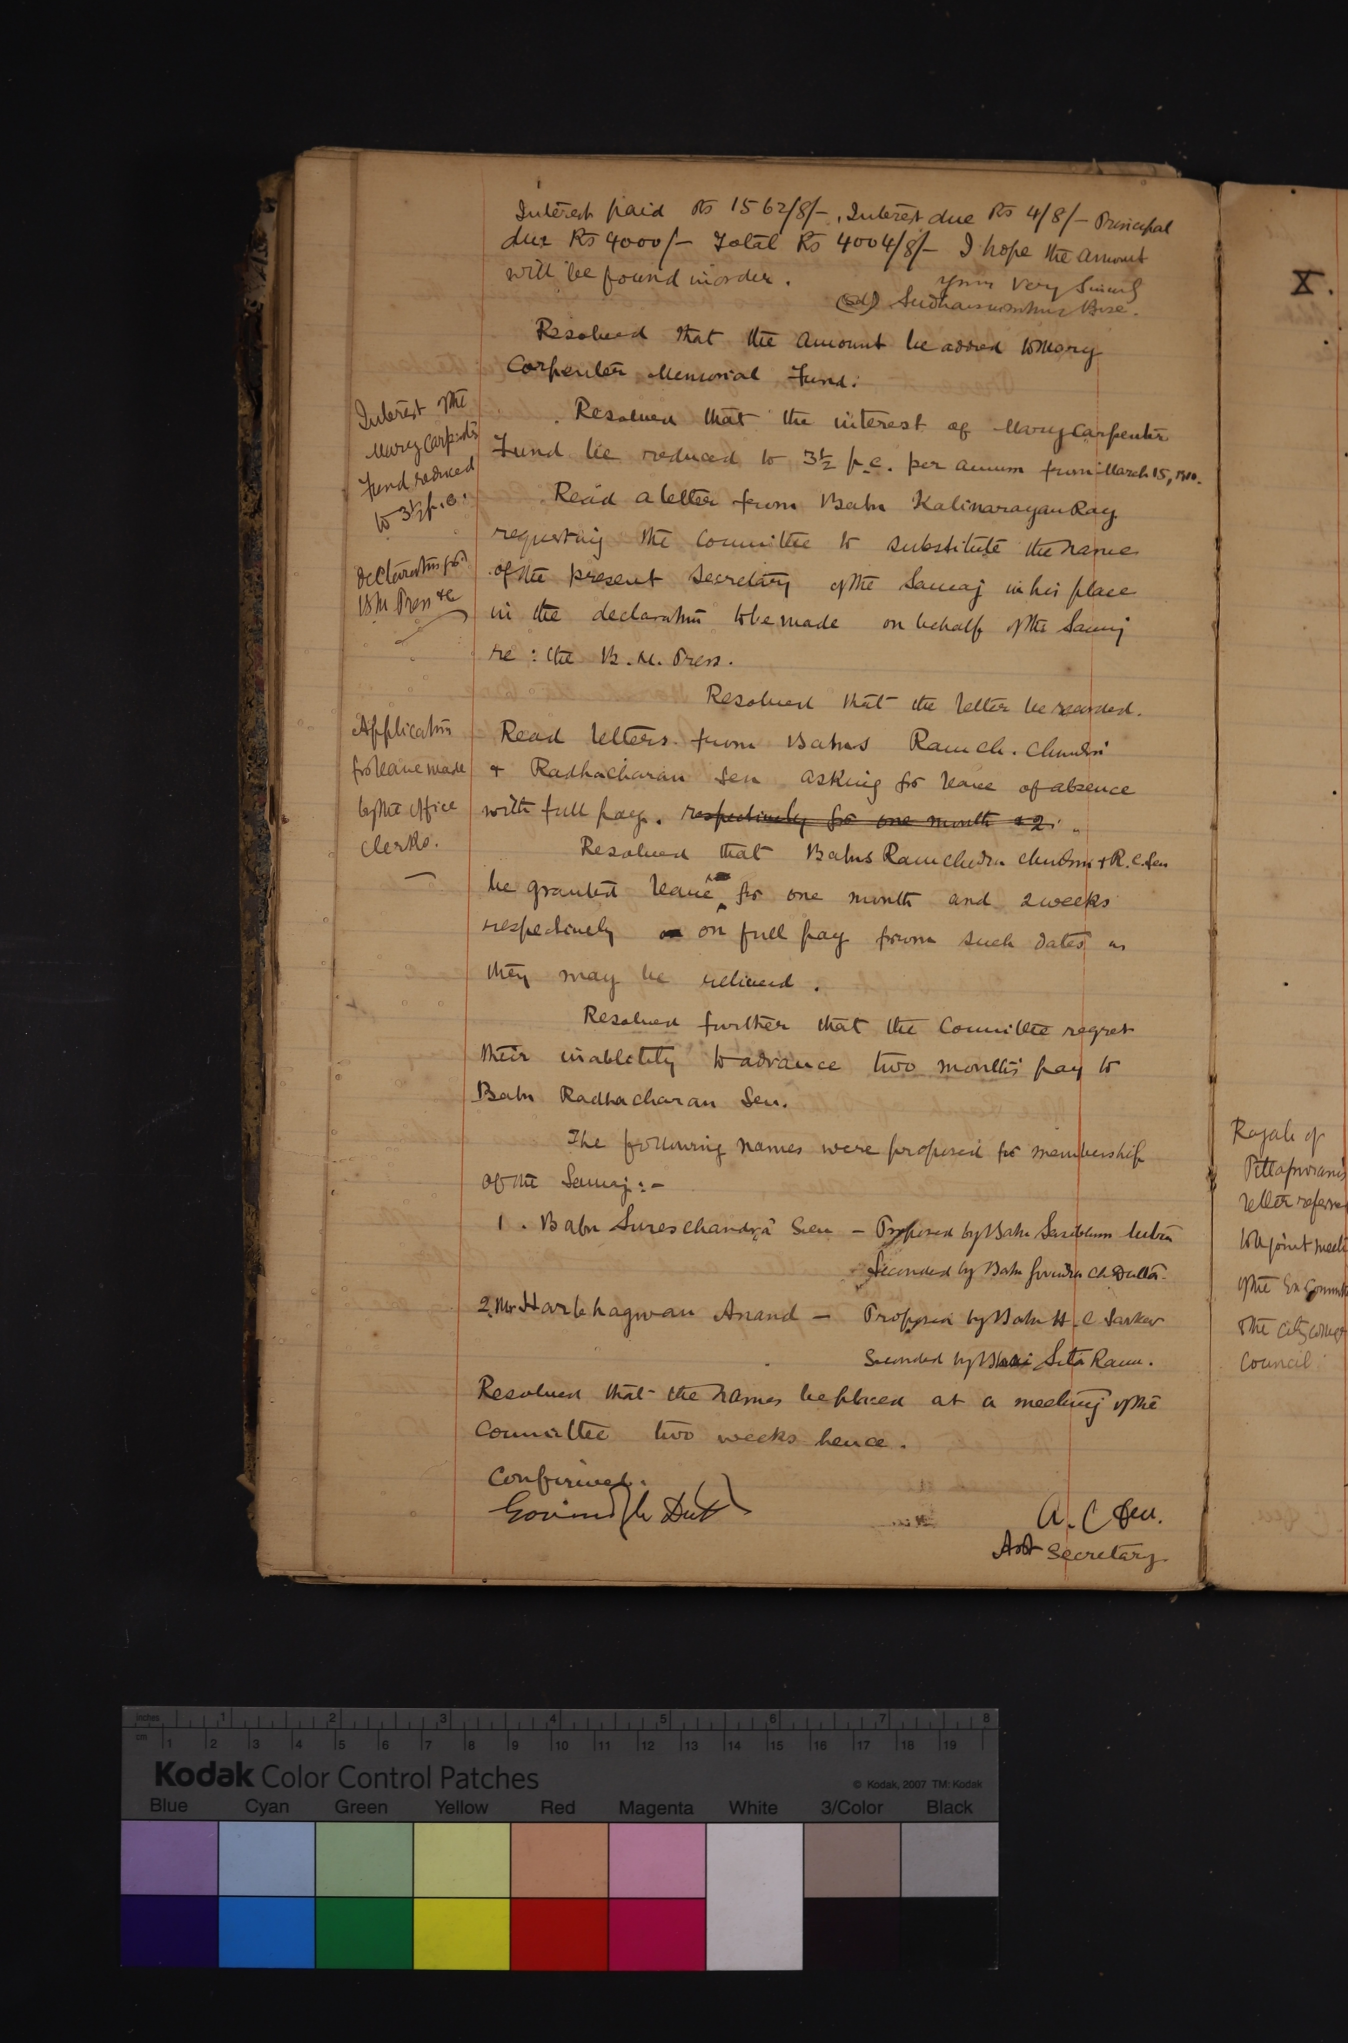 Interest paid Rs 1562/8/-, Interest due Rs 4/8/- Principal
due Rs 4000/- Total Rs 4004/8/- I hope the amount
will be found in order.
Yours very Sincerely
(Sd)
Resolved that the amount be added to Mary
Carpenter Memorial Fund.
Interest of the
Mary Carpenter
Fund reduced
to 3½ p.c.
Resolved that the interest of Mary Carpenter
Fund be reduced to 3½ p.c. per annum from March 15, 1910.
Declaration for
B M Press &c
Read a letter from Babu Kalinarayan Ray
requesting the Committee to substitute the name
of the present Secretary of the Samaj in his place
in the declaration to be made on behalf of the Samaj
re: the B. M. Press.
Resolved that the letter be recorded.
Application
for leave made
by the office
clerks.
Read letters from Babus Ram Ch.
& Radhacharan Sen asking for leave of absence
with full pay. respectively for one month & 2
Resolved that Babus Ramchandra & R. C. Sen
be granted leave for one month and 2 weeks
respectively on full pay from such dates as
they may be relieved.
Resolved further that the Committee regret
their inability to advance two months' pay to
Babu Radhacharan Sen.
The following names were proposed for membership
of the Samaj:-
1. Babu Sureschandra Sen - Proposed by Babu Sasibhusan Mitra
Seconded by Babu Govinda Ch Dutta.
2. Mr Harbhagwan Anand - Proposed by Babu H. C. Sarkar
Seconded by Bhai Sita Ram.
Resolved that the names be placed at a meeting of the
Committee two weeks hence.
Confirmed.
Govinda Ch Dutt
A. C. Sen.
Asst Secretary
X.
Rajah of
Pittapuram's
letter referred
to a joint meeti
of the Ex Committ
& the City College
Council.
inches 1 2 3 4 5 6 7 8
cm 1 2 3 4 5 6 7 8 9 10 11 12 13 14 15 16 17 18 19
Kodak Color Control Patches
© Kodak, 2007 TM: Kodak
Blue Cyan Green Yellow Red Magenta White 3/Color Black